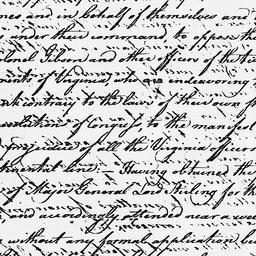 and in behalf of themselves and
under their command, to oppose the
Gibson and other officers of the
of Virginia, who are endeavoring
contrary to the laws of their own
resolution of Congress to the manifest
prejudice of all the Virginia officers
line. — Having obtained the
of Major General Lord Stirling for
and accordingly attended near a week
without any formal application